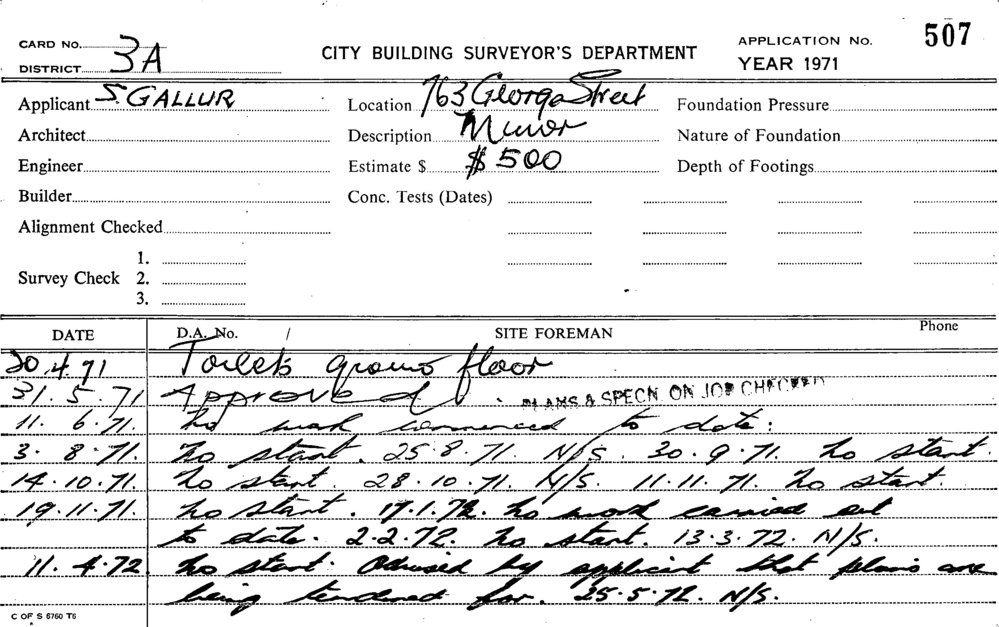 CARD No. 3A
DISTRICT
CITY BUILDING SURVEYOR'S DEPARTMENT
APPLICATION No. 507
YEAR 1971
Applicant S. GALLUR
Location 763 George Street
Foundation Pressure
Architect
Description Minor
Nature of Foundation
Engineer
Estimate $ $ 500
Depth of Footings
Builder
Conc. Tests (Dates)
Alignment Checked
Survey Check 1.
2.
3.
DATE D.A. No. / SITE FOREMAN Phone
20.4.71 Toilets ground floor
31.5.71 Approved PLANS & SPECN. ON JOB CHECKED
11.6.71. No work commenced to date.
3.8.71. No start. 25.8.71. N/S. 30.9.71. No start.
14.10.71. No start. 28.10.71. N/S. 11.11.71. No start.
19.11.71. No start. 17.1.72. No work carried out
to date. 2.2.72. No start. 13.3.72. N/S.
11.4.72 No start. Advised by applicant that plans are
being tendered for. 25.5.72. N/S.
C OF S 6760 T6